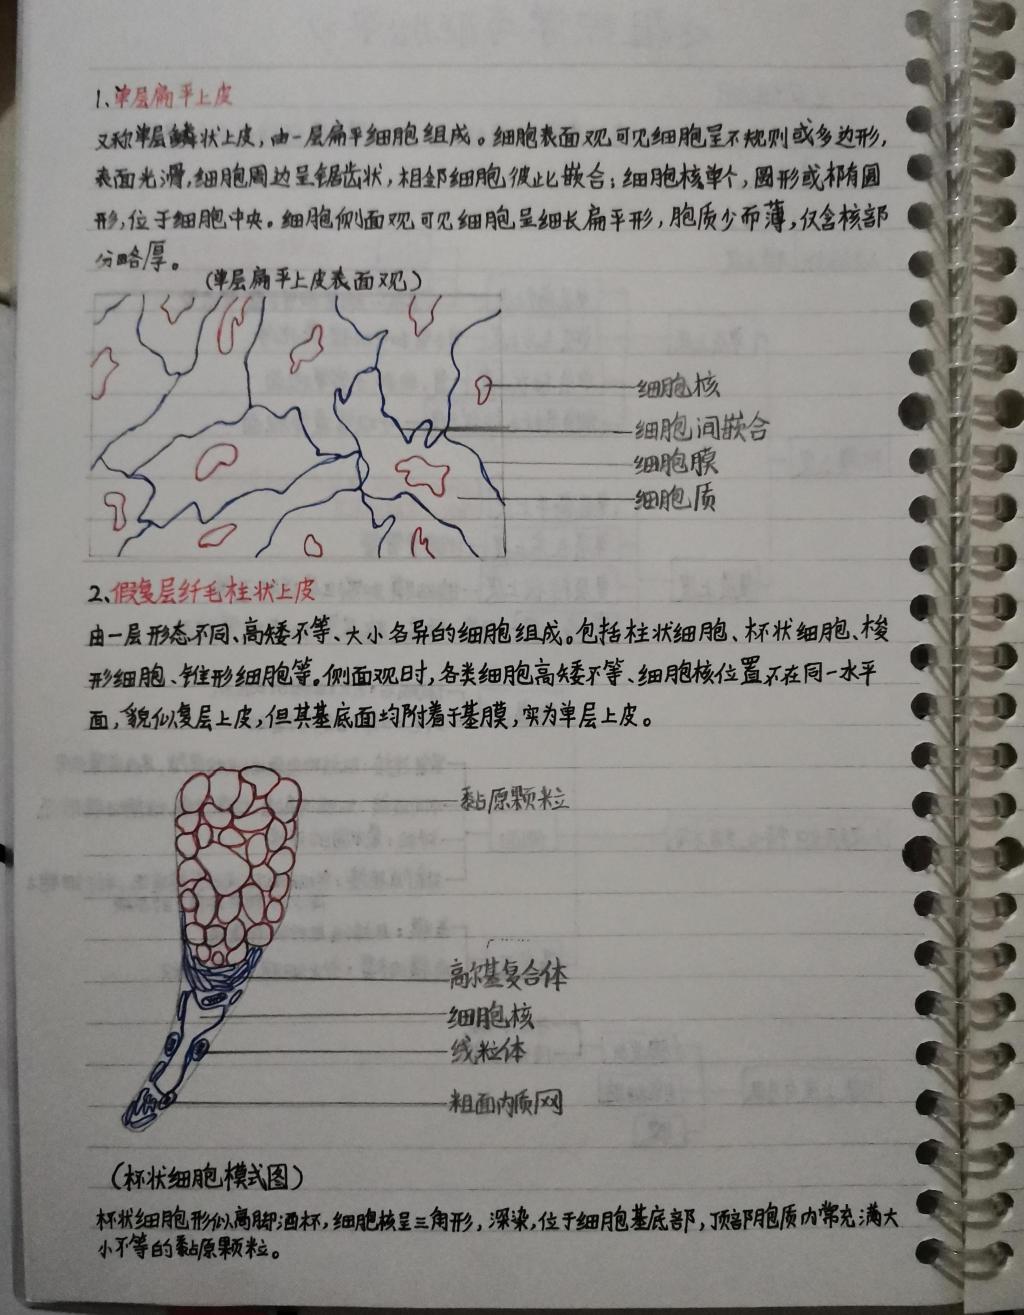 1、单层扁平上皮
又称单层鳞状上皮，由一层扁平细胞组成。细胞表面观可见细胞呈不规则或多边形，
表面光滑，细胞周边呈锯齿状，相邻细胞彼此嵌合；细胞核单个，圆形或椭圆
形，位于细胞中央。细胞侧面观可见细胞呈细长扁平形，胞质少而薄，仅含核部
分略厚。
（单层扁平上皮表面观）
细胞核
细胞间嵌合
细胞膜
细胞质
2、假复层纤毛柱状上皮
由一层形态不同、高矮不等、大小各异的细胞组成。包括柱状细胞、杯状细胞、梭
形细胞、锥形细胞等。侧面观时，各类细胞高矮不等、细胞核位置不在同一水平
面，貌似复层上皮，但其基底面均附着于基膜，实为单层上皮。
黏原颗粒
高尔基复合体
细胞核
线粒体
粗面内质网
（杯状细胞模式图）
杯状细胞形似高脚酒杯，细胞核呈三角形，深染，位于细胞基底部，顶部胞质内常充满大
小不等的黏原颗粒。